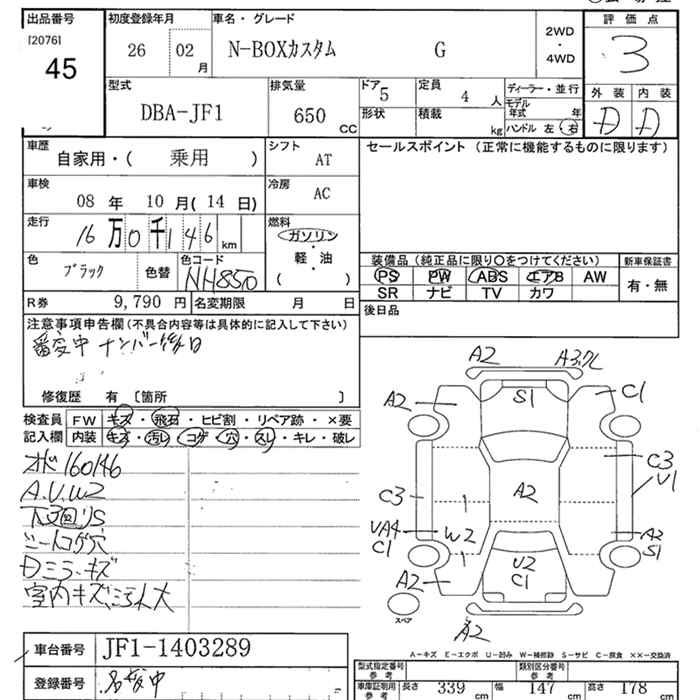 出品番号
[2076]
45
初度登録年月
26 02 月
車名・グレード
N-BOXカスタム G
2WD
・
4WD
評価点
3
外装 内装
D D
型式
DBA-JF1
排気量
650 CC
ドア
5
定員
4 人
形状
積載
kg
ディーラー・並行
モデル年式 年
ハンドル 左 右
車歴
自家用・( 乗用 )
シフト
AT
車検
08 年 10 月(14 日)
冷房
AC
走行
16 万 0 千 1 4 6 km
燃料
ガソリン
・
軽・油
( )
色
ブラック
色替
色コード
NH85P
R券 9,790 円
名変期限 月 日
セールスポイント (正常に機能するものに限ります)
装備品 (純正品に限り○をつけてください)
PS PW ABS エアB AW
SR ナビ TV カワ
新車保証書
有・無
後日品
注意事項申告欄 (不具合内容等は具体的に記入して下さい)
番変中 ナンバー後日
修復歴 有 〔箇所 〕
検査員記入欄
FW キズ・飛石・ヒビ割・リペア跡・×要
内装 キズ・汚レ・コゲ・穴・スレ・キレ・破レ
オド160146
A.U.W2
下廻りS
シートコゲ穴
Dミラーキズ
室内キズ、汚れ大
車台番号 JF1-1403289
登録番号 名変中
A2 A3ワレ
A2 S1 C1
C3 A2 C3 U1
UA4 C1 W2 A2 S1
A2 U2 C1
スペア
A2
A-キズ E-エクボ U-凹み W-補修跡 S-サビ C-腐食 XX-交換済
型式指定番号 参考
類別区分番号 参考
車庫証明用 参考 長さ 339 cm 幅 147 cm 高さ 178 cm